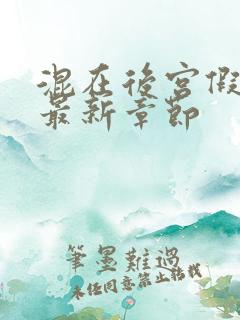 混在後宮假
最新章節
筆墨難過
未经同意禁止转载